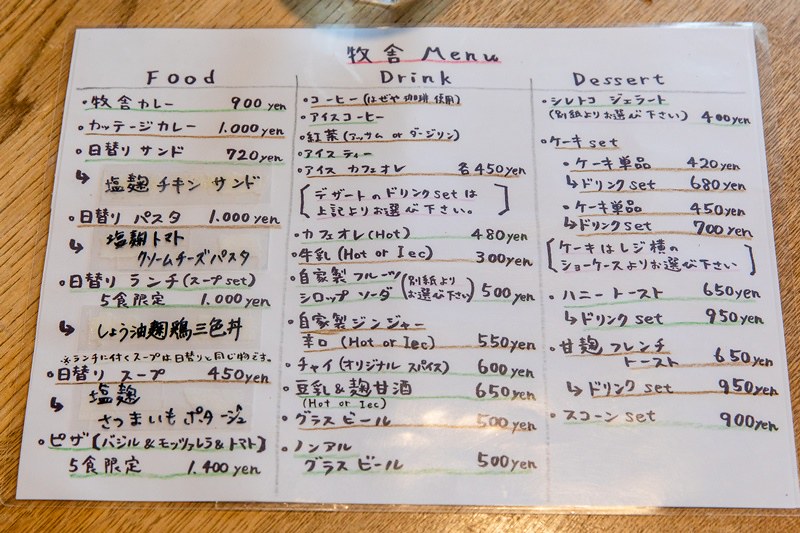 牧舎 Menu
Food
・牧舎カレー 900yen
・カッテージカレー 1.000yen
・日替り サンド 720yen
↳ 塩麹 チキン サンド
・日替り パスタ 1.000yen
↳ 塩麹トマト
クリームチーズパスタ
・日替り ランチ(スープset)
5食限定 1.000yen
↳ しょう油麹鶏三色丼
※ランチに付くスープは日替りと同じ物です。
・日替り スープ 450yen
↳ 塩麹
さつまいもポタージュ
・ピザ【バジル&モッツァレラ&トマト】
5食限定 1.400yen
Drink
・コーヒー(はぜや珈琲 使用)
・アイスコーヒー
・紅茶(アッサム or ダージリン)
・アイスティー
・アイス カフェオレ 各450yen
[デザートのドリンクsetは
上記よりお選び下さい。]
・カフェオレ(Hot) 480yen
・牛乳(Hot or Iec) 300yen
・自家製フルーツ
シロップ ソーダ(別紙よりお選び下さい) 500yen
・自家製ジンジャー
辛口(Hot or Iec) 550yen
・チャイ(オリジナル スパイス) 600yen
・豆乳&麹甘酒 650yen
(Hot or Iec)
・グラス ビール 500yen
・ノンアル
グラス ビール 500yen
Dessert
・シレトコ ジェラート
(別紙よりお選び下さい) 400yen
・ケーキset
・ケーキ単品 420yen
↳ドリンクset 680yen
・ケーキ単品 450yen
↳ドリンクset 700yen
[ケーキはレジ横の
ショーケースよりお選び下さい]
・ハニートースト 650yen
↳ドリンクset 950yen
・甘麹フレンチ
トースト 650yen
↳ドリンクset 950yen
・スコーンset 900yen